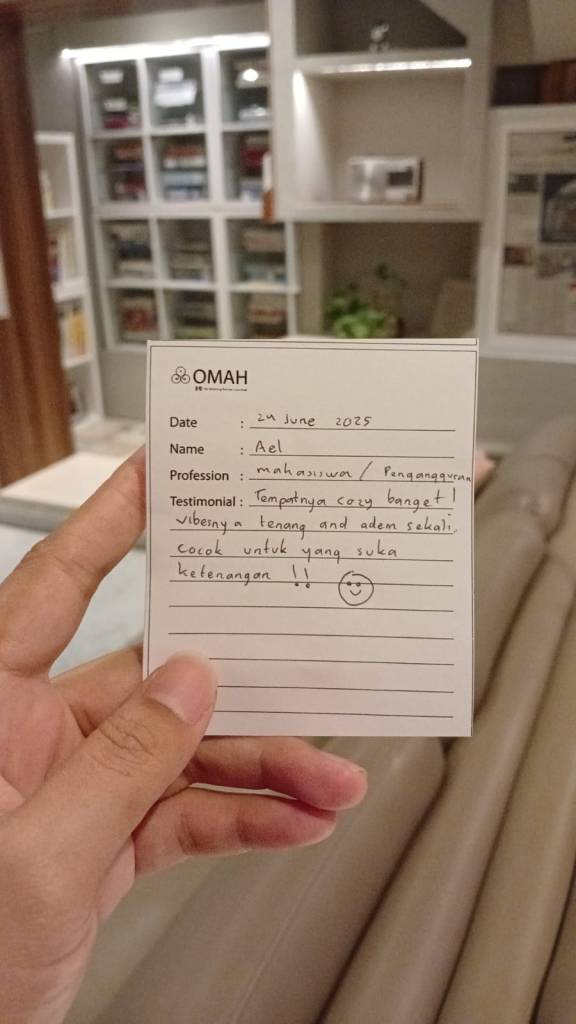 OMAH
Date : 24 June 2025
Name : Ael
Profession : mahasiswa / Pengangguran
Testimonial : Tempatnya cozy banget!
vibesnya tenang and adem sekali.
cocok untuk yang suka
ketenangan !!